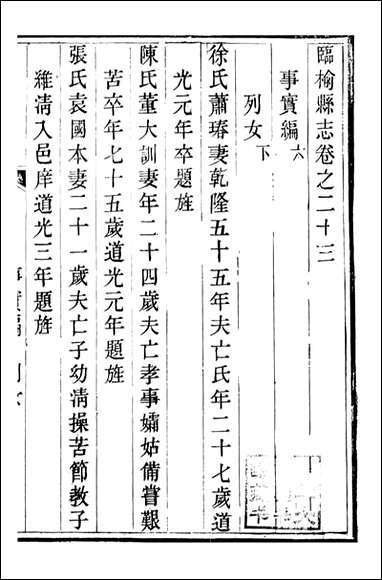 臨榆縣志卷之二十三
事實編六
列女下
徐氏蕭瑃妻乾隆五十五年夫亡氏年二十七歲道
光元年卒題旌
陳氏董大訓妻年二十四歲夫亡孝事孀姑備嘗艱
苦卒年七十五歲道光元年題旌
張氏袁國本妻二十一歲夫亡子幼淸操苦節教子
維淸入邑庠道光三年題旌